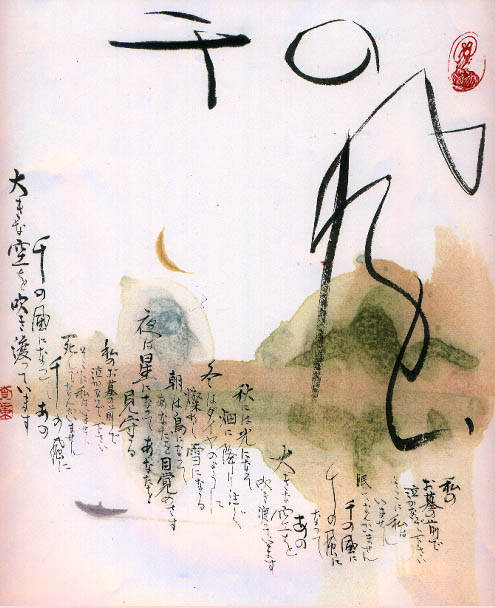 千の風
私の
お墓の前で
泣かないで下さい
そこに私は
いません
眠ってなんかいません
千の風に
千の風に
なって
あの
大きな空を
吹き渡っています
秋には光になって
畑に降り注ぐ
冬はダイヤのように
燦めく雪になる
朝は鳥になって
夜は星になってあなたを
見守る
私のお墓の前で
泣かないで下さい
そこに私はいません
死んでなんかいません
千の風に
千の風になって あの
大きな空を吹き渡っています